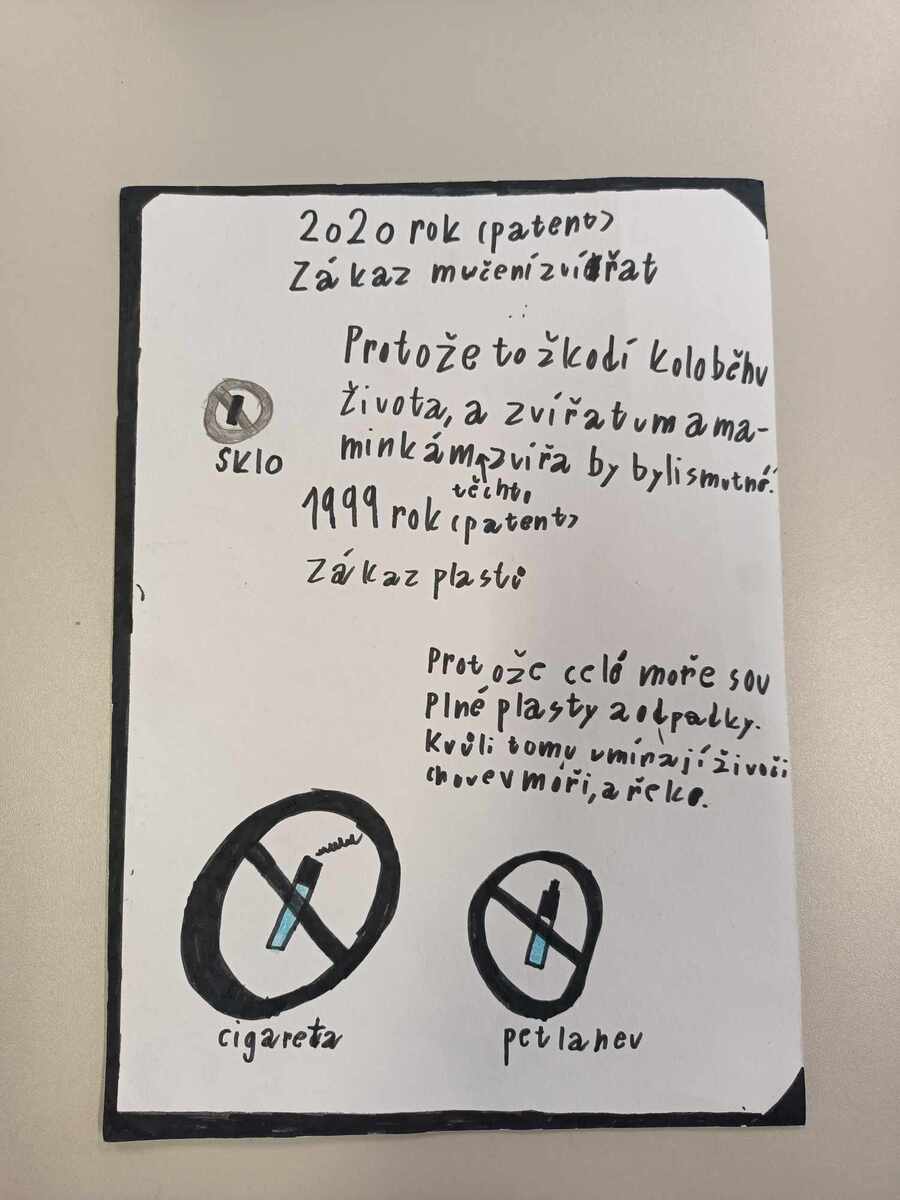 2020 rok (patent)
Zákaz mučení zvířat
Protože to žkodí koloběhu
života, a zvířatum a ma-
minkám těchto zvířa by byli smutné.
sklo
1999 rok (patent)
Zákaz plasti
Protože celé moře sou
Plné plasty a odpadky.
Kvůli tomu umírají živoči
chove v moři, a řeke.
cigareta
petlahev